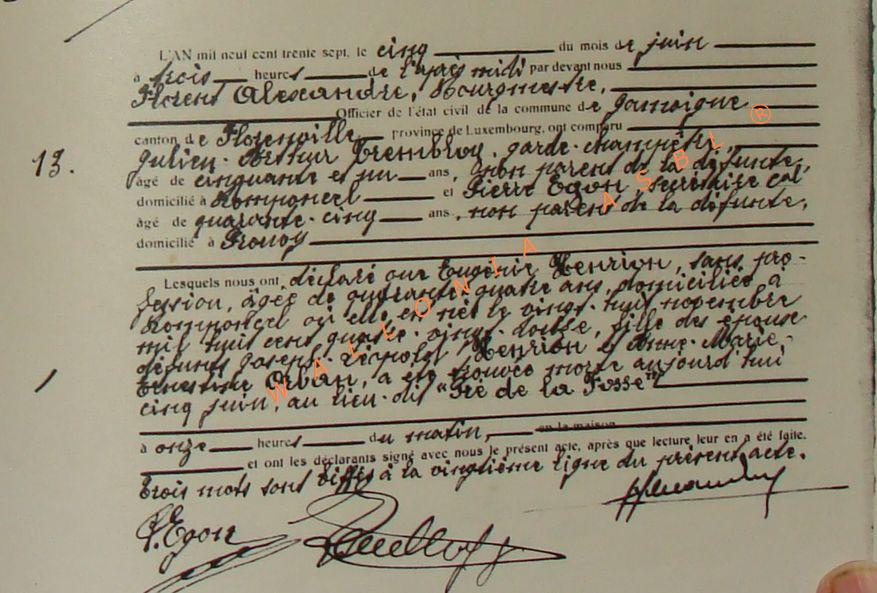 L'AN mil neuf cent trente sept, le cinq du mois de juin
à trois heures de l'après midi par devant nous
Florent Alexandre, Bourgmestre,
Officier de l'état civil de la commune de Jamoigne
canton de Florenville province de Luxembourg, ont comparu
Julien-Arthur Trembloy, garde-champêtre,
13.
âgé de cinquante et un ans, non parent de la défunte,
domicilié à Romponcel et Pierre Egon, secrétaire cal
âgé de quarante-cinq ans, non parent de la défunte,
domicilié à Prouvy
Lesquels nous ont déclaré que Eugénie Henrion, sans pro-
fession, âgée de quarante quatre ans, domiciliée à
Romponcel où elle est née le vingt-huit novembre
mil huit cent quatre-vingt-douze, fille des époux
défunts Joseph-Léopold Henrion et Anne-Marie-
Ernestine, a été trouvée morte aujourd'hui
cinq juin, au lieu-dit "Pré de la Fosse"
à onze heures du matin, en la maison
et ont les déclarants signé avec nous le présent acte, après que lecture leur en a été faite.
Trois mots sont biffés à la vingtième ligne du présent acte.
P. Egon
WALLONIA ASBL ®